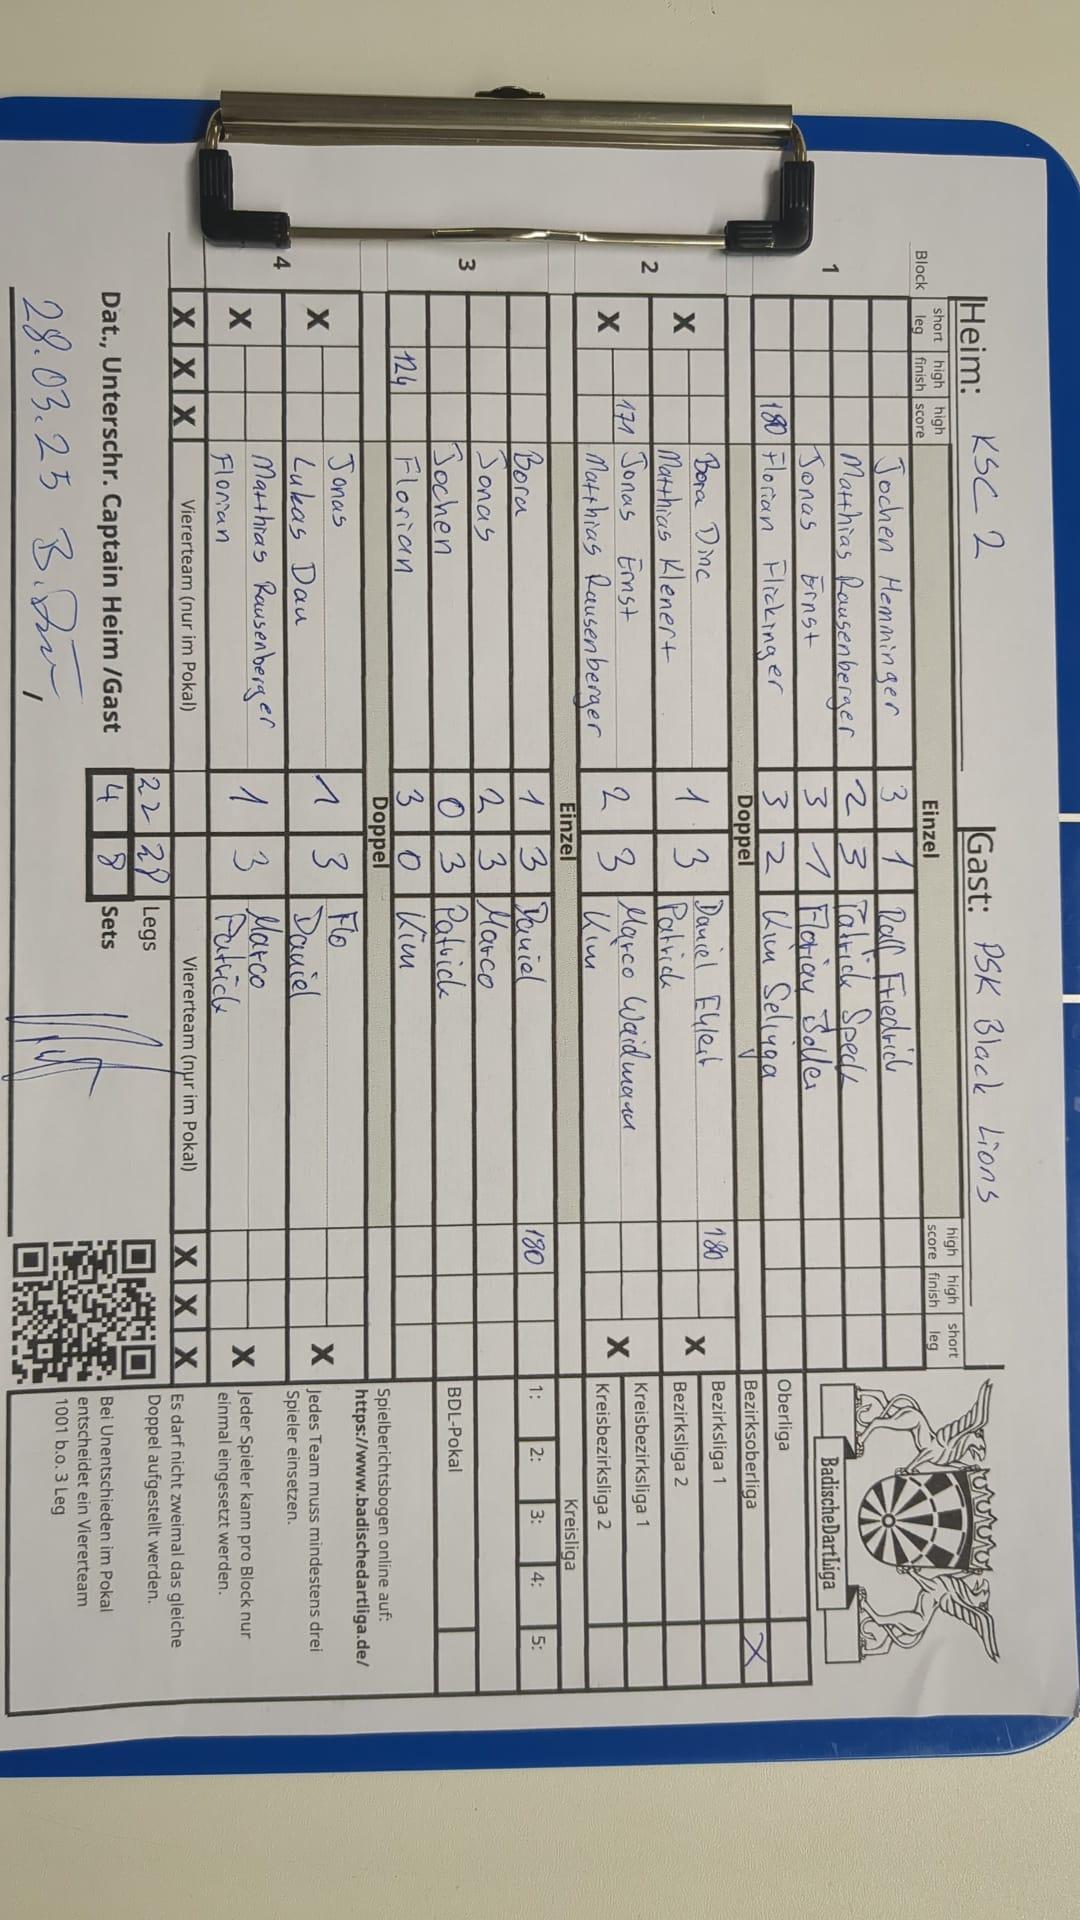 Heim: KSC 2 Gast: PSK Black Lions
Block short leg high finish high score Einzel high score high finish short leg
1
Jochen Hemminger 3 1 Ralf Friedrich
Matthias Rausenberger 2 3 Patrick Speck
Jonas Ernst 3 1 Florian Boller
180 Florian Flickinger 3 2 Kim Seliga
Doppel
2
X Bora Dinc 1 3 Daniel Ehleit 180 X
Matthias Klenert Patrick
X 171 Jonas Ernst 2 3 Marco Waidmann X
Matthias Rausenberger Kim
Einzel
3
Bora 1 3 Daniel 180
Jonas 2 3 Marco
Jochen 0 3 Patrick
124 Florian 3 0 Kim
Doppel
4
X Jonas 1 3 Flo X
Lukas Dau Daniel
X Matthias Rausenberger 1 3 Marco X
Florian Patrick
X X X Viererteam (nur im Pokal) Viererteam (nur im Pokal) X X X
22 28 Legs
Dat., Unterschr. Captain Heim /Gast 4 8 Sets
28.03.25
BadischeDartLiga
Oberliga
Bezirksoberliga X
Bezirksliga 1
Bezirksliga 2
Kreisbezirksliga 1
Kreisbezirksliga 2
Kreisliga
1: 2: 3: 4: 5:
BDL-Pokal
Spielberichtsbogen online auf:
https://www.badischedartliga.de/
Jedes Team muss mindestens drei
Spieler einsetzen.
Jeder Spieler kann pro Block nur
einmal eingesetzt werden.
Es darf nicht zweimal das gleiche
Doppel aufgestellt werden.
Bei Unentschieden im Pokal
entscheidet ein Viererteam
1001 b.o. 3 Leg